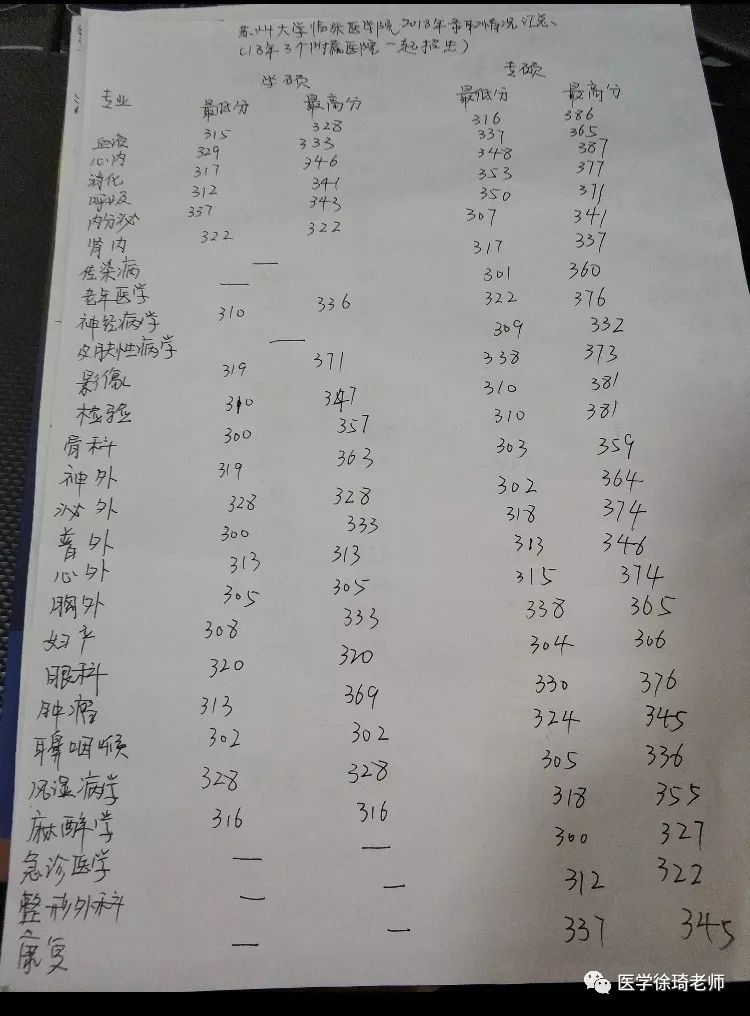 苏州大学临床医学院2018年录取情况汇总、
（18年3个附属医院一起招生）
学硕 专硕
专业 最低分 最高分 最低分 最高分
血液 315 328 316 386
心内 329 333 337 365
消化 317 346 348 387
呼吸 312 341 353 377
内分泌 337 343 350 371
肾内 322 322 307 341
传染病 — 317 337
老年医学 — 301 360
神经病学 310 336 322 376
皮肤性病学 — 309 332
影像 319 371 338 373
检验 310 347 310 381
骨科 300 357 310 381
神外 319 363 303 359
泌外 328 328 302 364
普外 300 333 318 374
心外 313 313 313 346
胸外 305 305 315 374
妇产 308 333 338 365
眼科 320 320 304 306
肿瘤 313 369 330 376
耳鼻咽喉 302 302 324 345
风湿病学 328 328 305 336
麻醉学 316 316 318 355
急诊医学 — — 300 327
整形外科 — — 312 322
康复 — — 337 345
医学徐琦老师